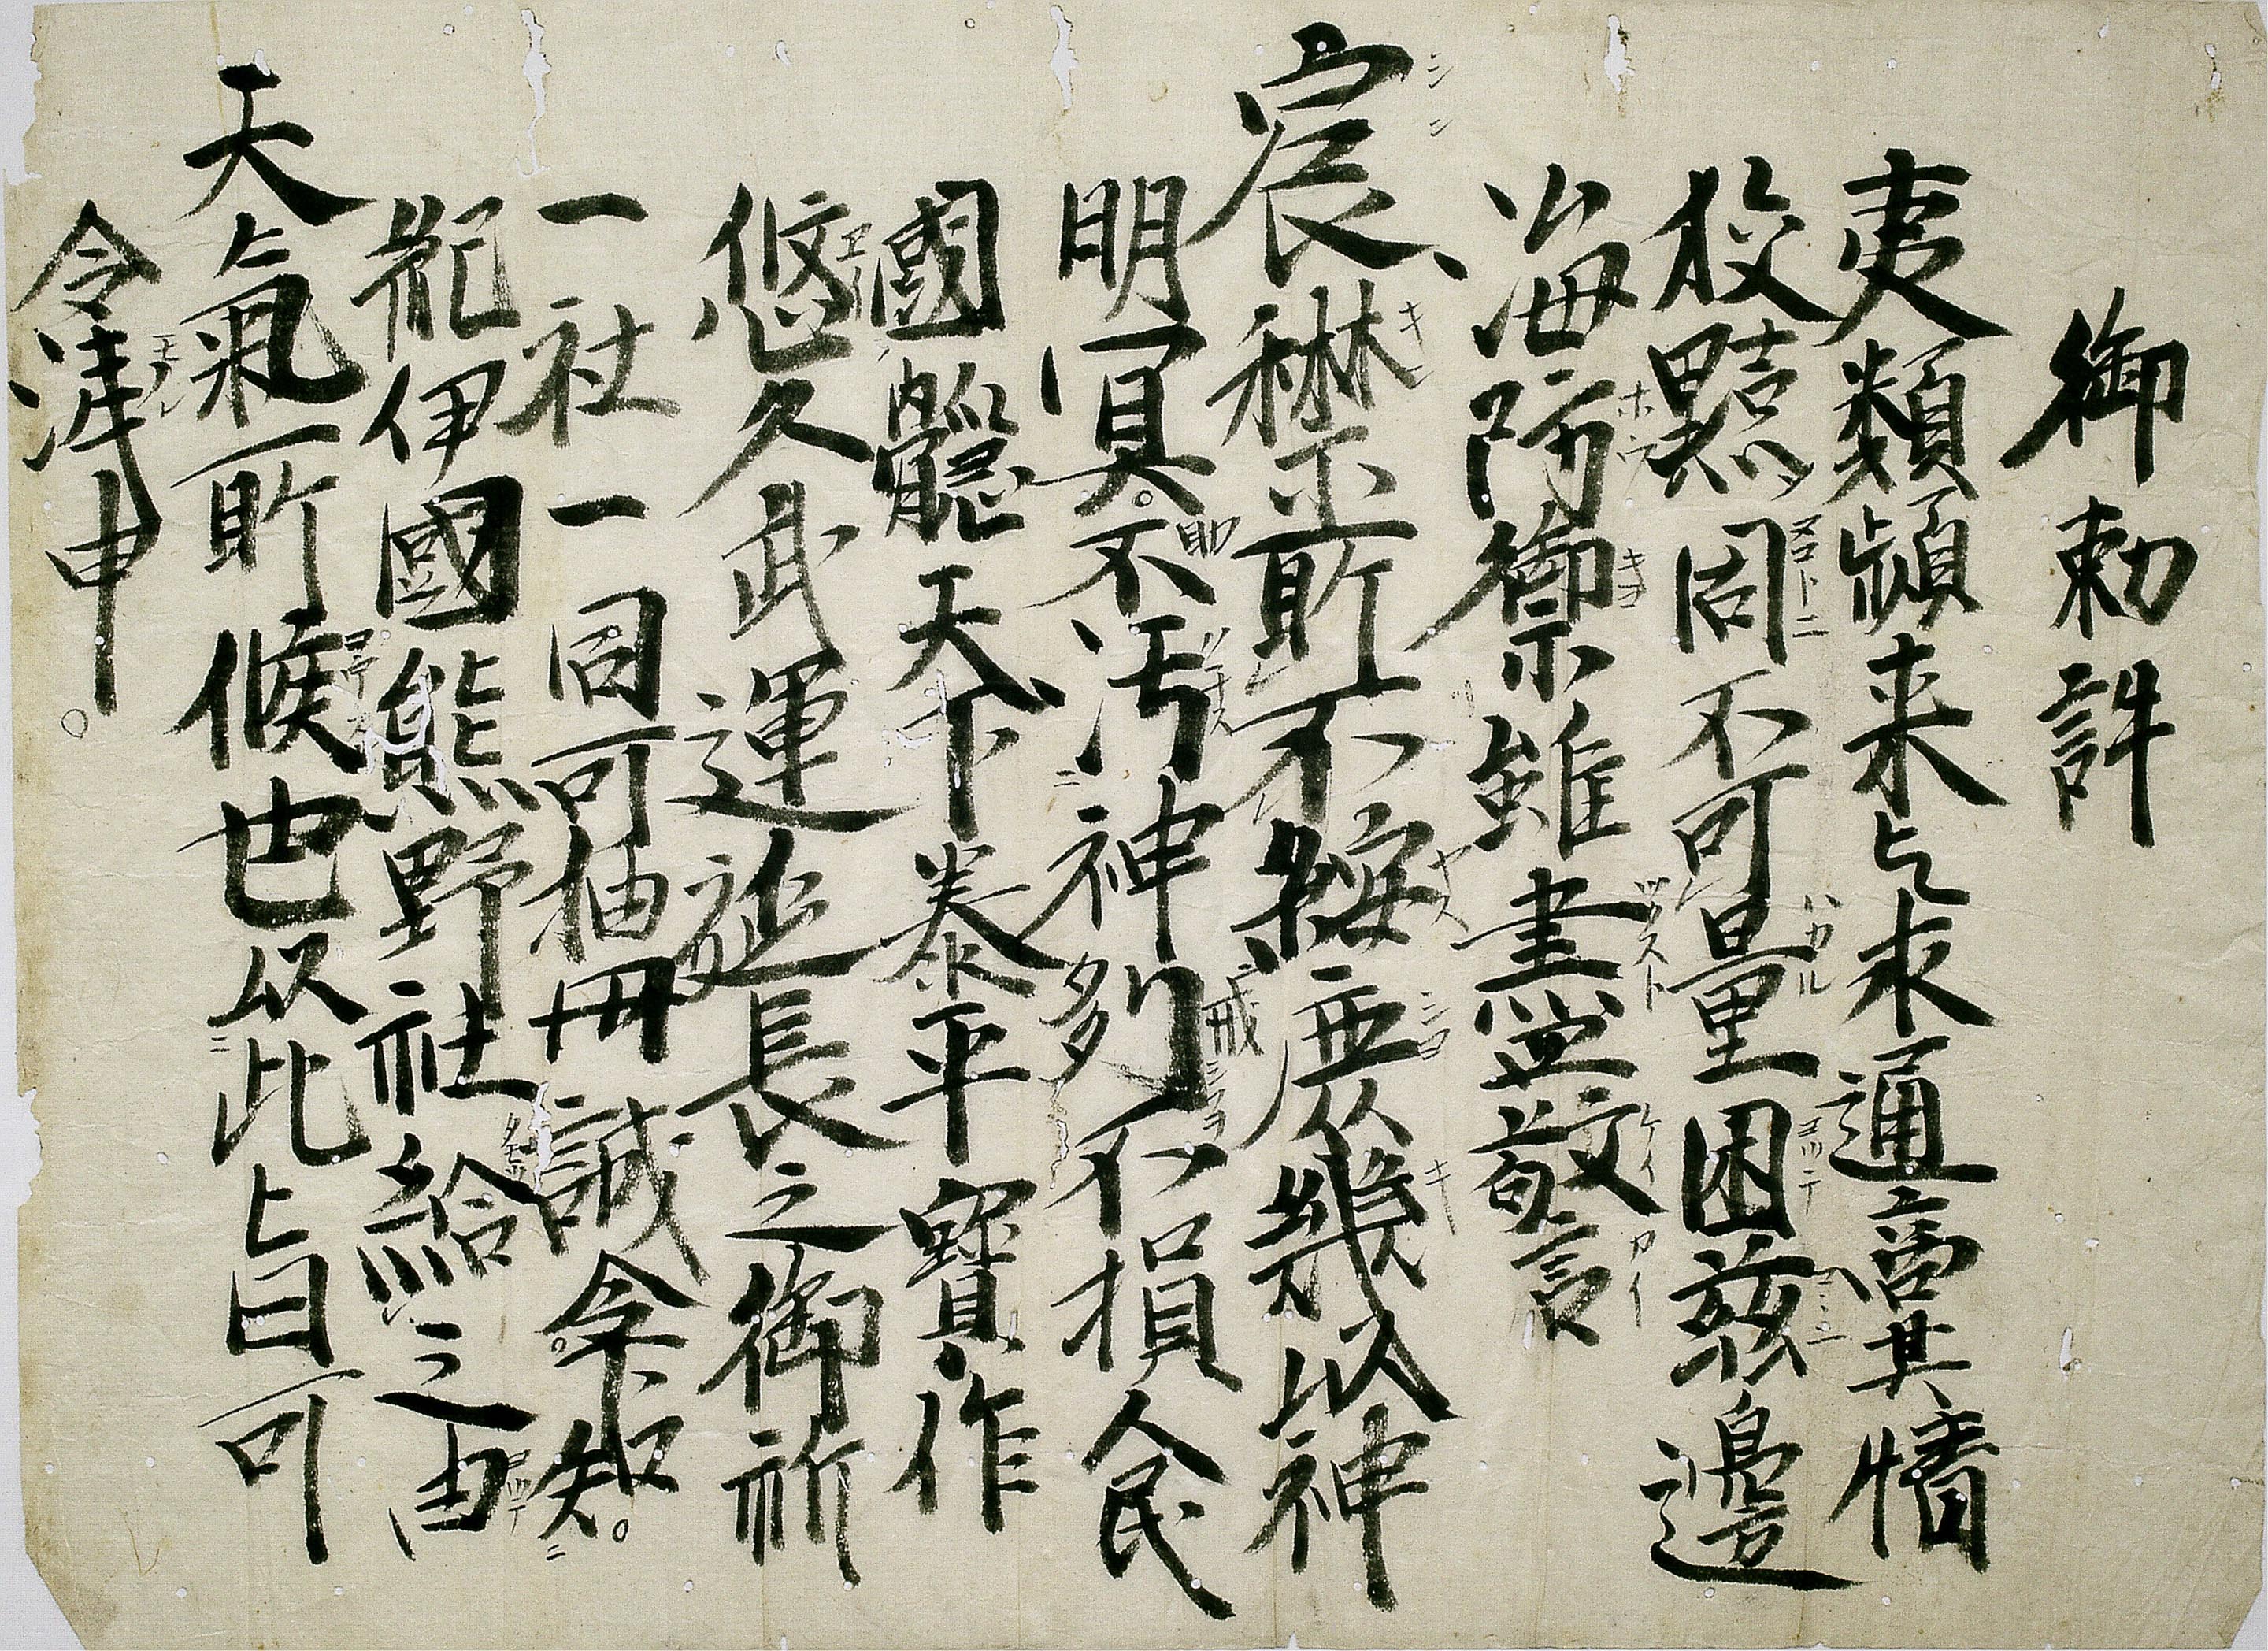 御勅許
夷類頻来乞求通商其情
狡黠固不可量因茲邊
海防禦雖盡警
宸襟所不綏庶幾以神
明冥助不汚神列不損人民
國體天下泰平寶作
悠久武運延長之御祈
一社一同可抽丹誠令下知
紀伊國熊野社給之由
天氣所候也以此旨可
令洩申